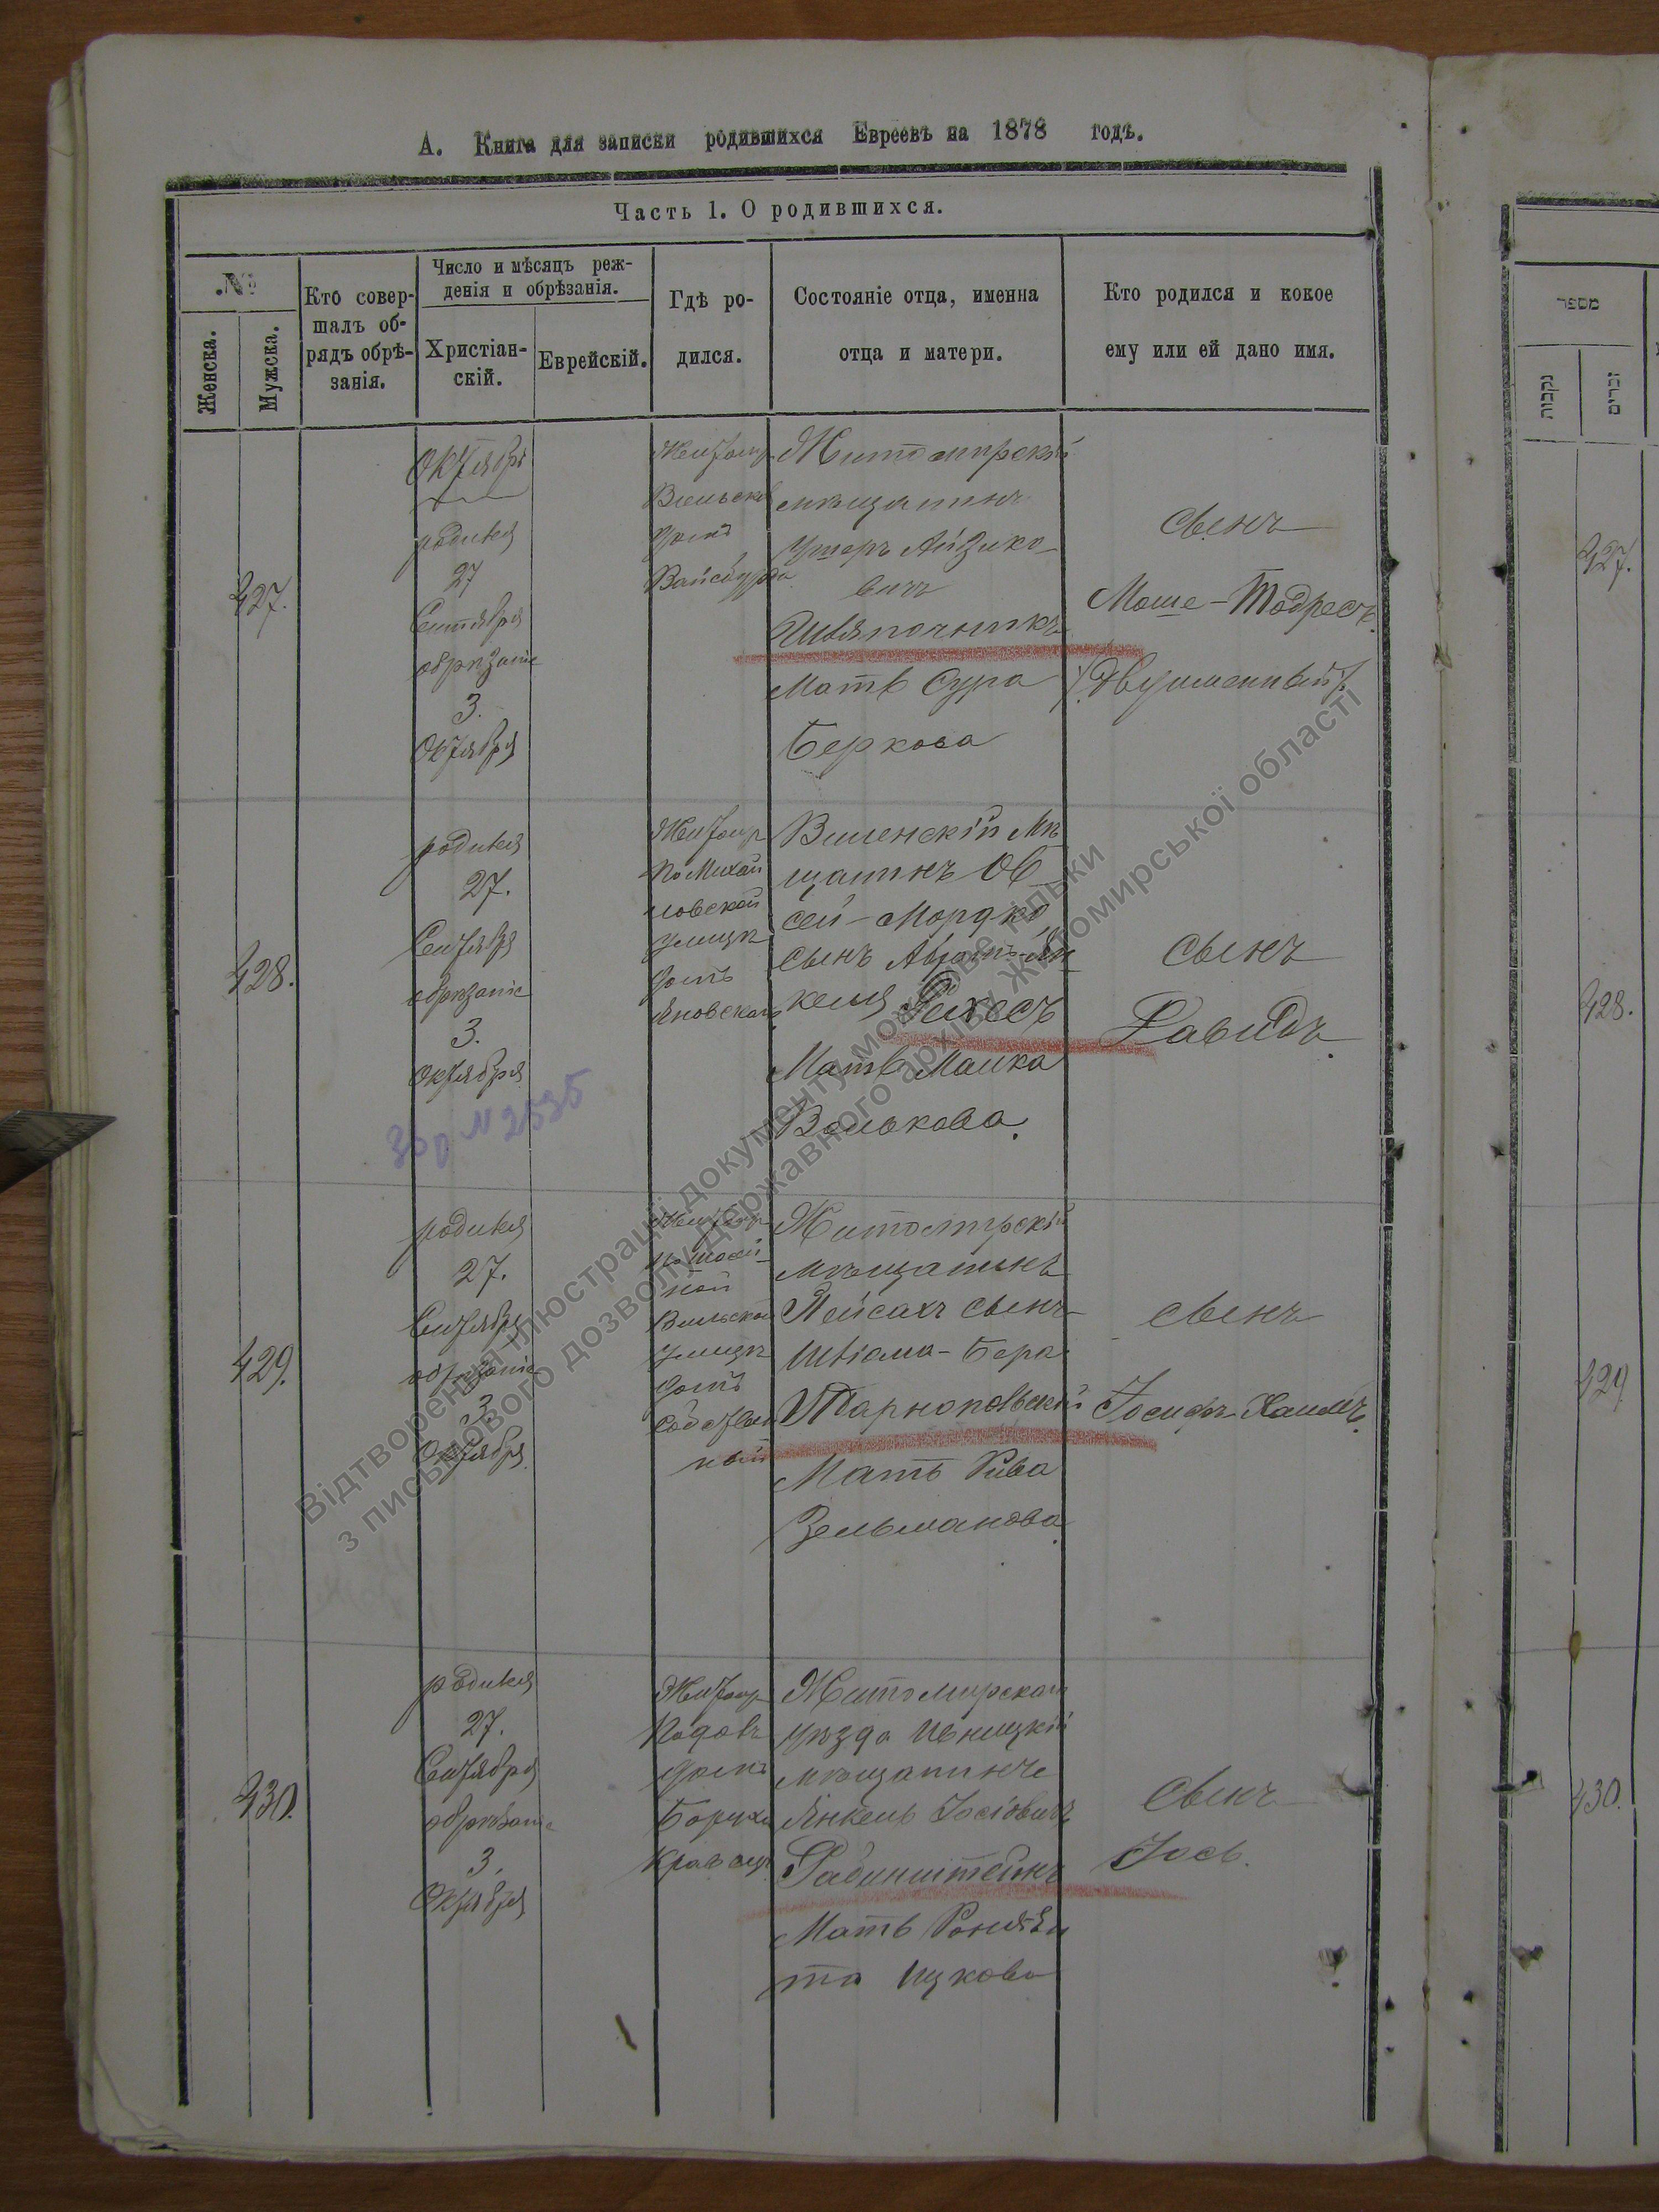 А. Книга для записки родившихся Евреевъ на 1878 годъ.
Часть 1. О родившихся.
№
Женска.
Мужска.
Кто совер-
шалъ об-
рядъ обрѣ-
занія.
Число и мѣсяцъ реж-
денія и обрѣзанія.
Христіан-
скій.
Еврейскій.
Гдѣ ро-
дился.
Состояніе отца, именна
отца и матери.
Кто родился и кокое
ему или ей дано имя.
427.
Октябрь
родился
27
Сентября
обрѣзаніе
3.
Октября
Житомир
Вильской
домъ
Житомирскій
мѣщанинъ
Ушеръ Айзико-
вичъ
Шляпочникъ
Мать Сура
Беркова
сынъ
Моше-Тодресъ
(Двуименный)
428.
родился
27.
Сентября
обрѣзаніе
3.
Октября
Зап N 2535
Житомир
по Михай
ловской
улицѣ
домъ
Яновскаго
Виленскій мѣ
щанинъ Ов
сей-Мордко
сынъ Аврамъ-Ян
келя Рихесъ
Мать Малка
Волькова.
сынъ
Давидъ.
429.
родился
27.
Сентября
обрѣзаніе
3
Октября
Житомир
по шосей
ной
Вильской
улицѣ
домъ
Собствен
ный
Житомирскій
мѣщанинъ
Пейсахъ сынъ
Шліома-Бера
Тарнопольскій
Мать Рива
Зельманова
сынъ
Іосифъ-Хаимъ.
430.
родился
27.
Сентября
обрѣзаніе
3.
Октября
Житомир
домъ
Боруха
Кравецъ
Житомирскаго
уѣзда Ивницкій
мѣщанинъ
Янкель Іосіовичъ
Рабинштейнъ
Мать
та Ицкова
сынъ
Іось.
מספר
נקבות
זכרים
427.
428.
429.
430.
Відтворення ілюстрації документу можливе тільки
з письмового дозволу Державного архіву Житомирської області